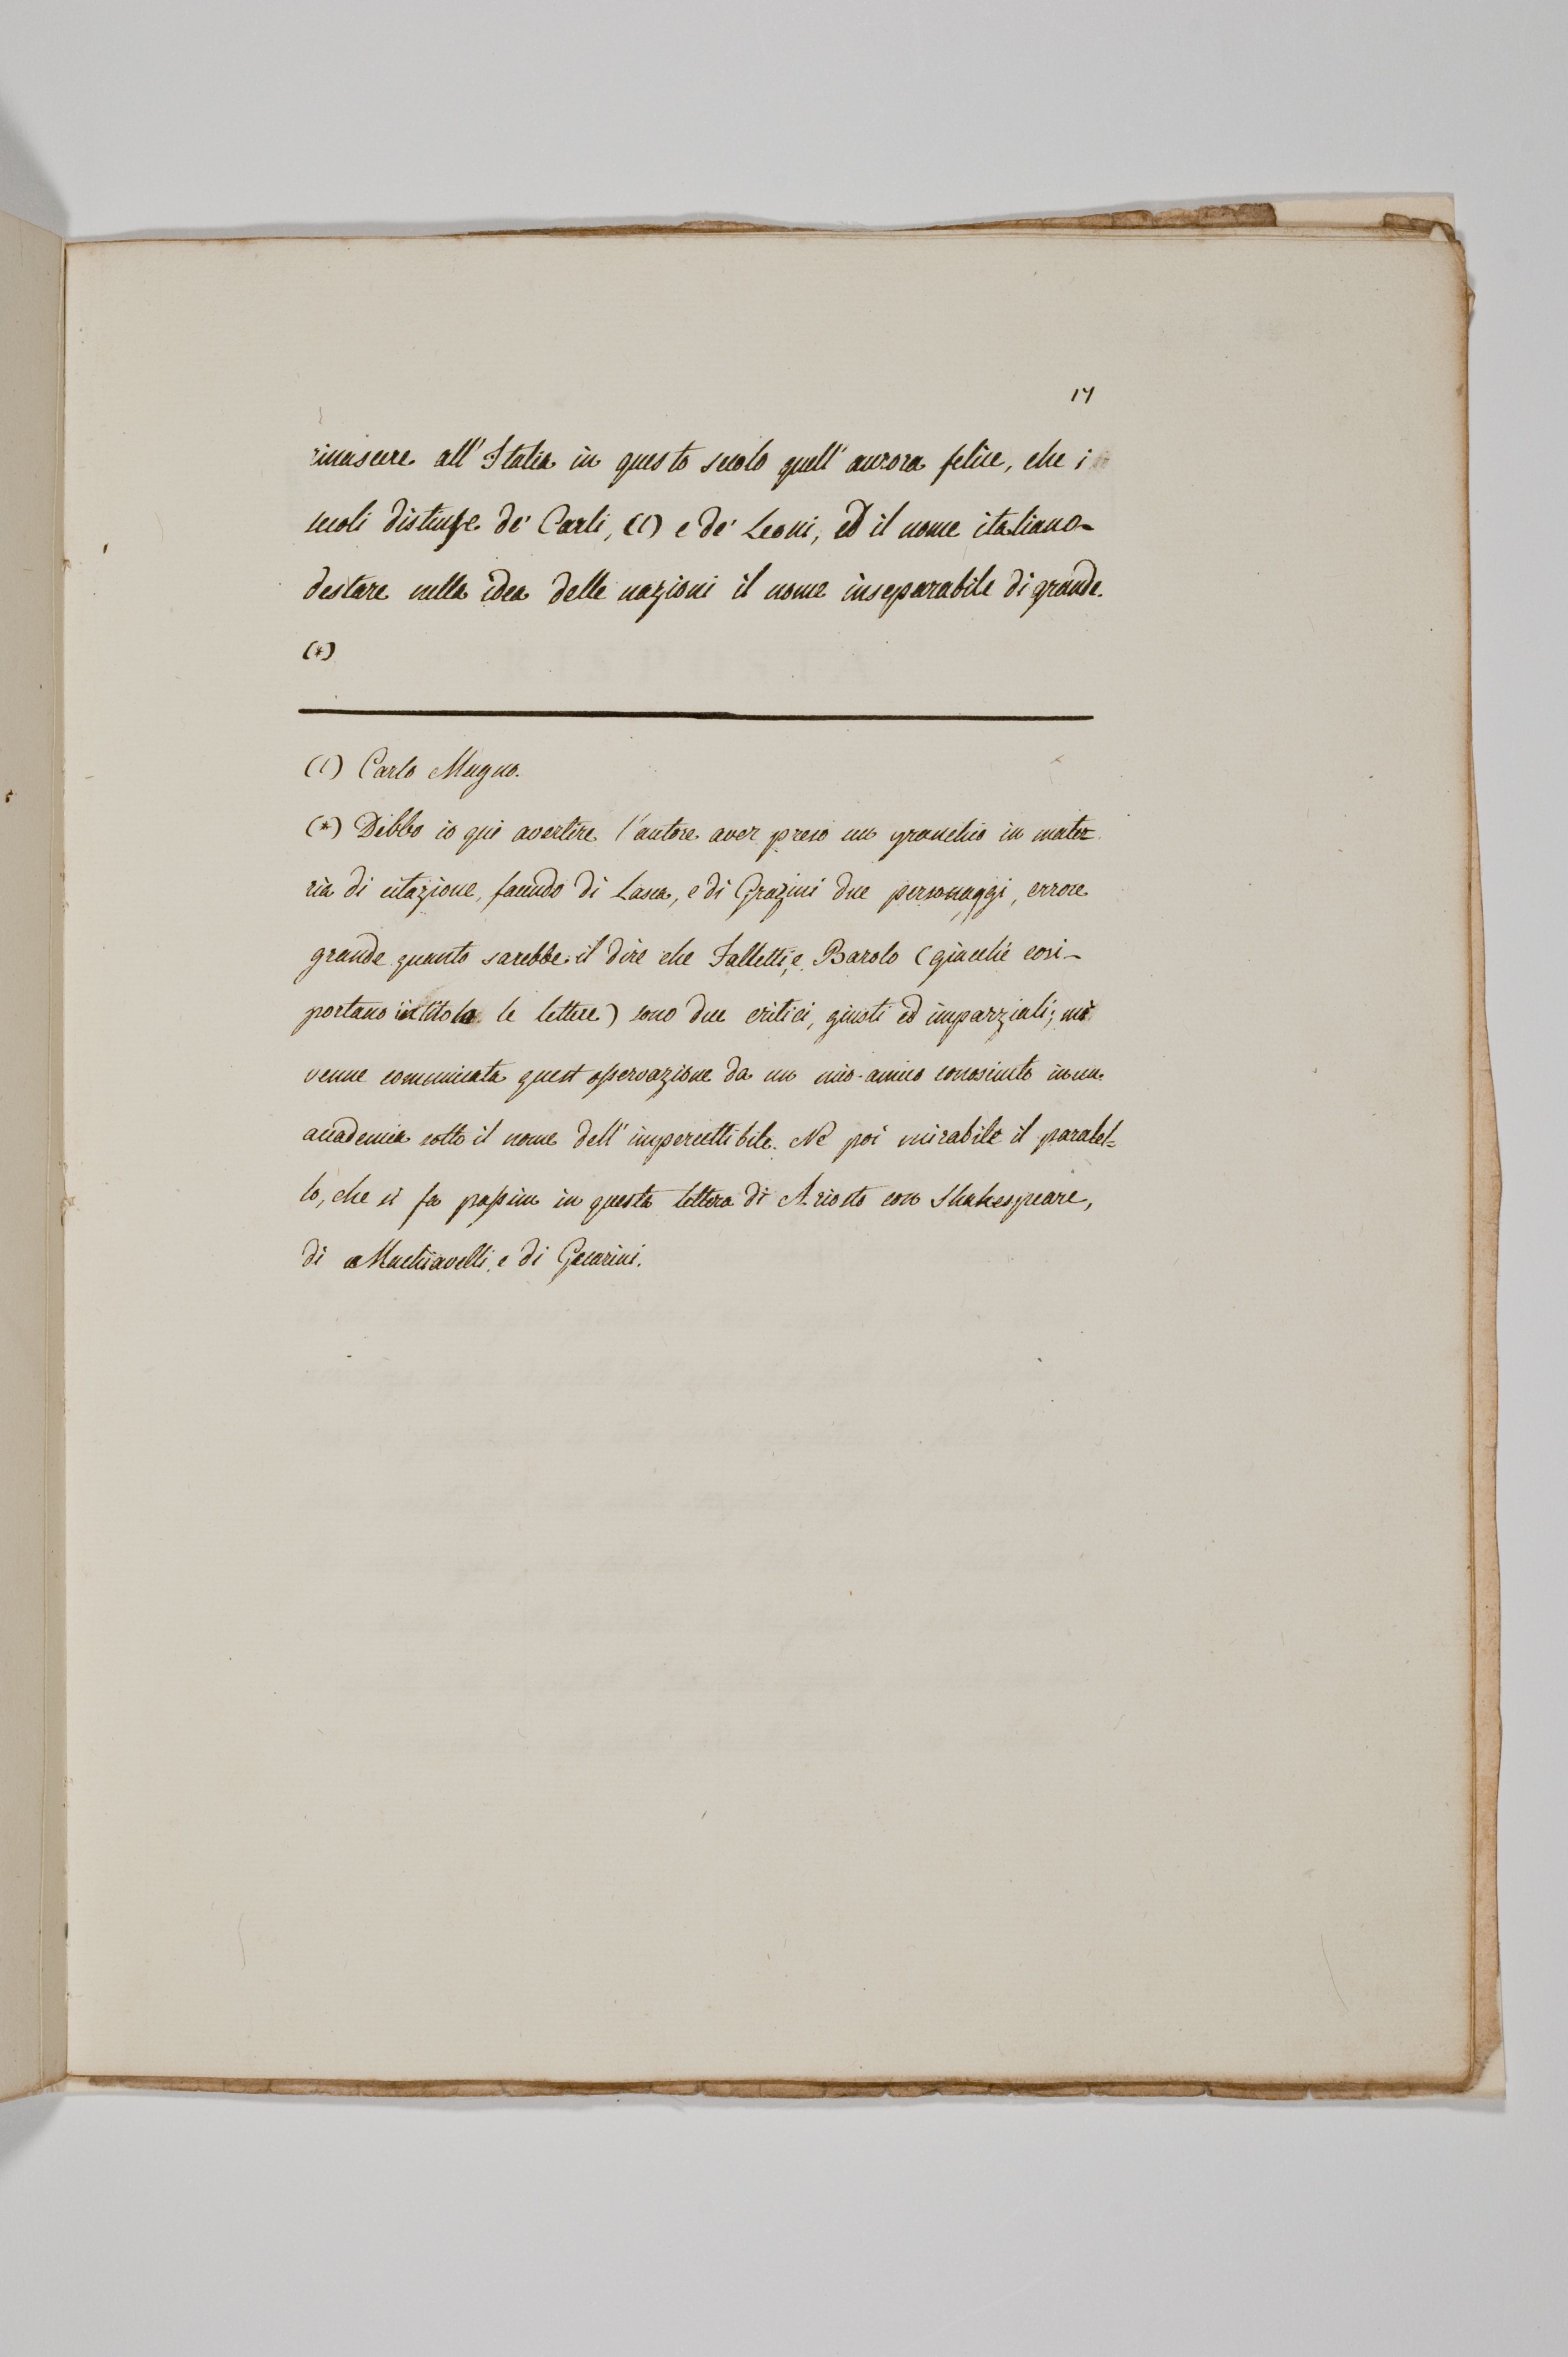 17
rinascere all' Italia in questo secolo quell' aurora felice, che i
secoli distinse de' Carli, (1) e de' Leoni, ed il nome italiano
destare nella idea delle nazioni il nome inseparabile di grande.
(*)
(1) Carlo Magno.
(*) Debbo io quì avertire l'autore aver preso un granchio in mate=
ria di citazione, facendo di Lasca, e di Grazini due personaggi, errore
grande quanto sarebbe il dire che Falletti, e Barolo (giacchè cosi
portano in titolo le lettere) sono due critici, giusti ed imparziali; mi
venne comunicata quest osservazione da un mio amico conosciuto in un
accademia sotto il nome dell' impercettibile. Nè poi mirabile il paralel=
lo, che si fa passim in questa lettera di Ariosto con Shakespeare,
di Machiavelli, e di Guarini.
RISPOSTA